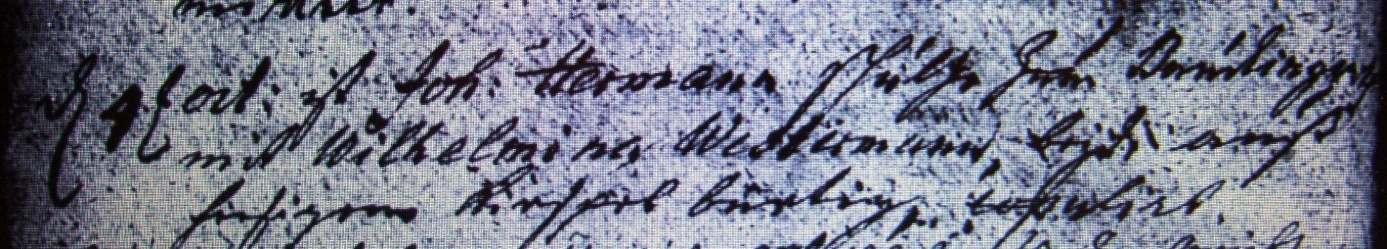 d 4t oct: ist Joh: Hermann Schultze zum
mit Wilhelmina Westermann, beyde auß
hiesigem Kirspel bürtig, copulirt.